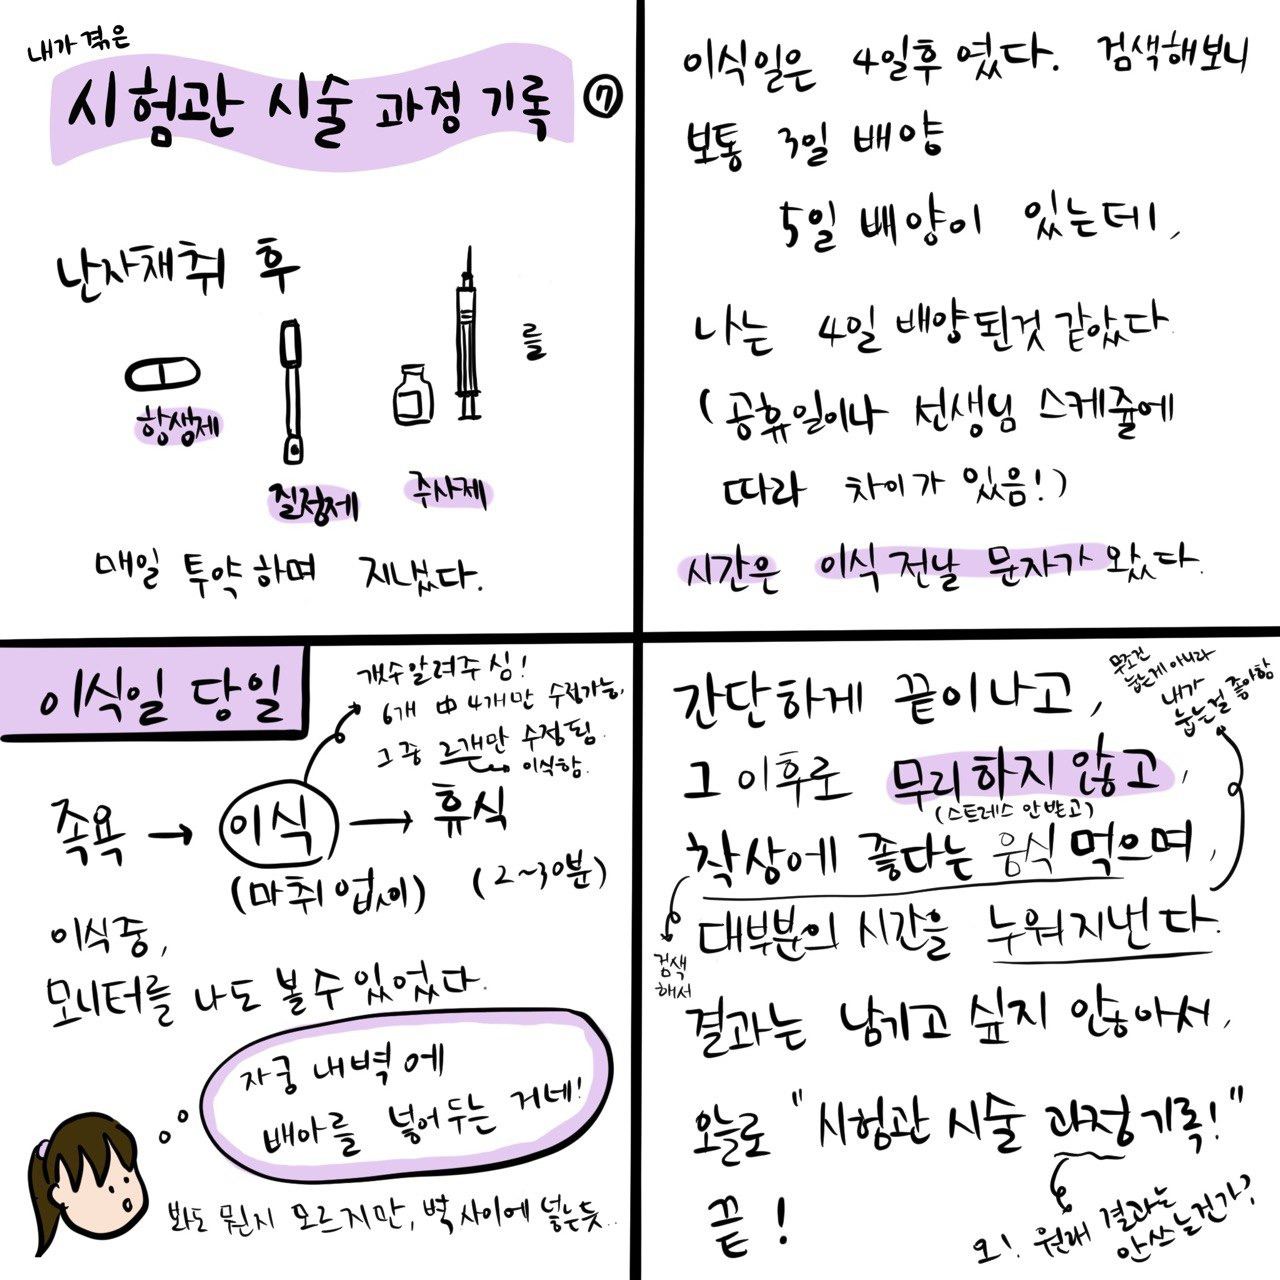 내가 겪은
시험관 시술 과정 기록 ⑦
난자채취 후
를
항생제
질정제
주사제
매일 투약하며 지냈다.
이식일은 4일후 였다. 검색해보니
보통 3일 배양
5일 배양이 있는데,
나는 4일 배양된것 같았다.
(공휴일이나 선생님 스케쥴에
따라 차이가 있음!)
시간은 이식 전날 문자가 왔다.
이식일 당일
갯수알려주심!
6개 中 4개만 수정가능,
그 중 2개만 수정됨.
이식함.
족욕 → 이식 → 휴식
(마취 없이) (2~30분)
이식중,
모니터를 나도 볼 수 있었다.
자궁 내벽에
배아를 넣어두는 거네!
봐도 뭔지 모르지만, 벽 사이에 넣는듯..
간단하게 끝이나고,
무조건
눕는게 아니라
내가
눕는걸 좋아함
그 이후로 무리하지 않고,
(스트레스 안 받고)
착상에 좋다는 음식 먹으며,
대부분의 시간을 누워지낸다.
검색
해서
결과는 남기고 싶지 않아서,
오늘로 "시험관 시술 과정기록!"
끝!
오! 원래 결과는
안쓰는건가?